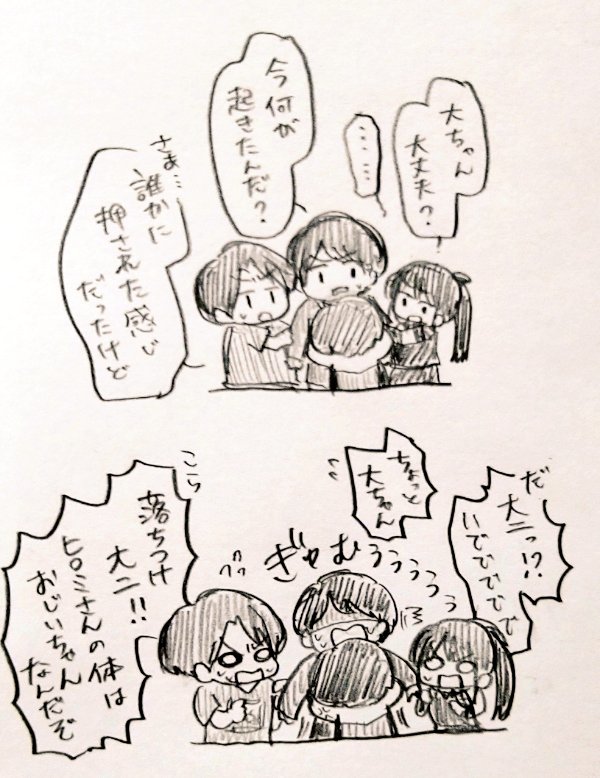 大ちゃん
大丈夫?
………
今何が
起きたんだ?
さぁ…
誰かに
押された感じ
だったけど
だ
大二っ!?
いでででででで
ちょっと
大ちゃん
ぎゅむぅぅぅぅぅ
こら
落ちつけ
大二!!
ヒロミさんの体は
おじいちゃん
なんだぞ